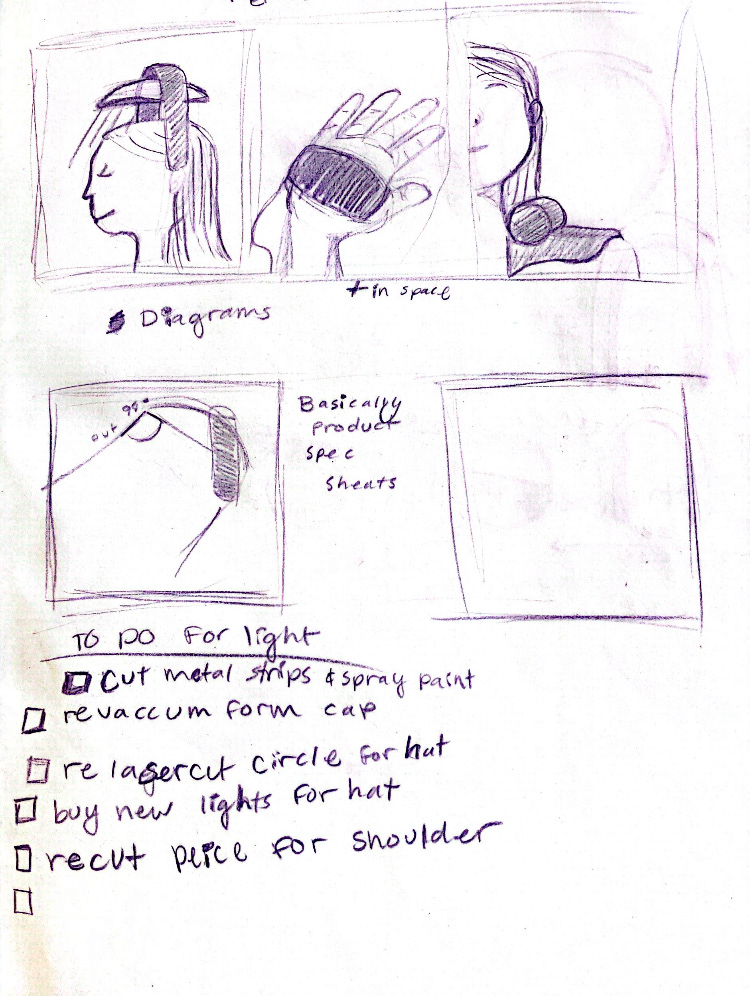 + in space
Diagrams
cut 99°
Basically
product
spec
sheats
TO DO for light
cut metal strips & spray paint
revaccum form cap
re lasercut circle for hat
buy new lights for hat
recut peice for shoulder